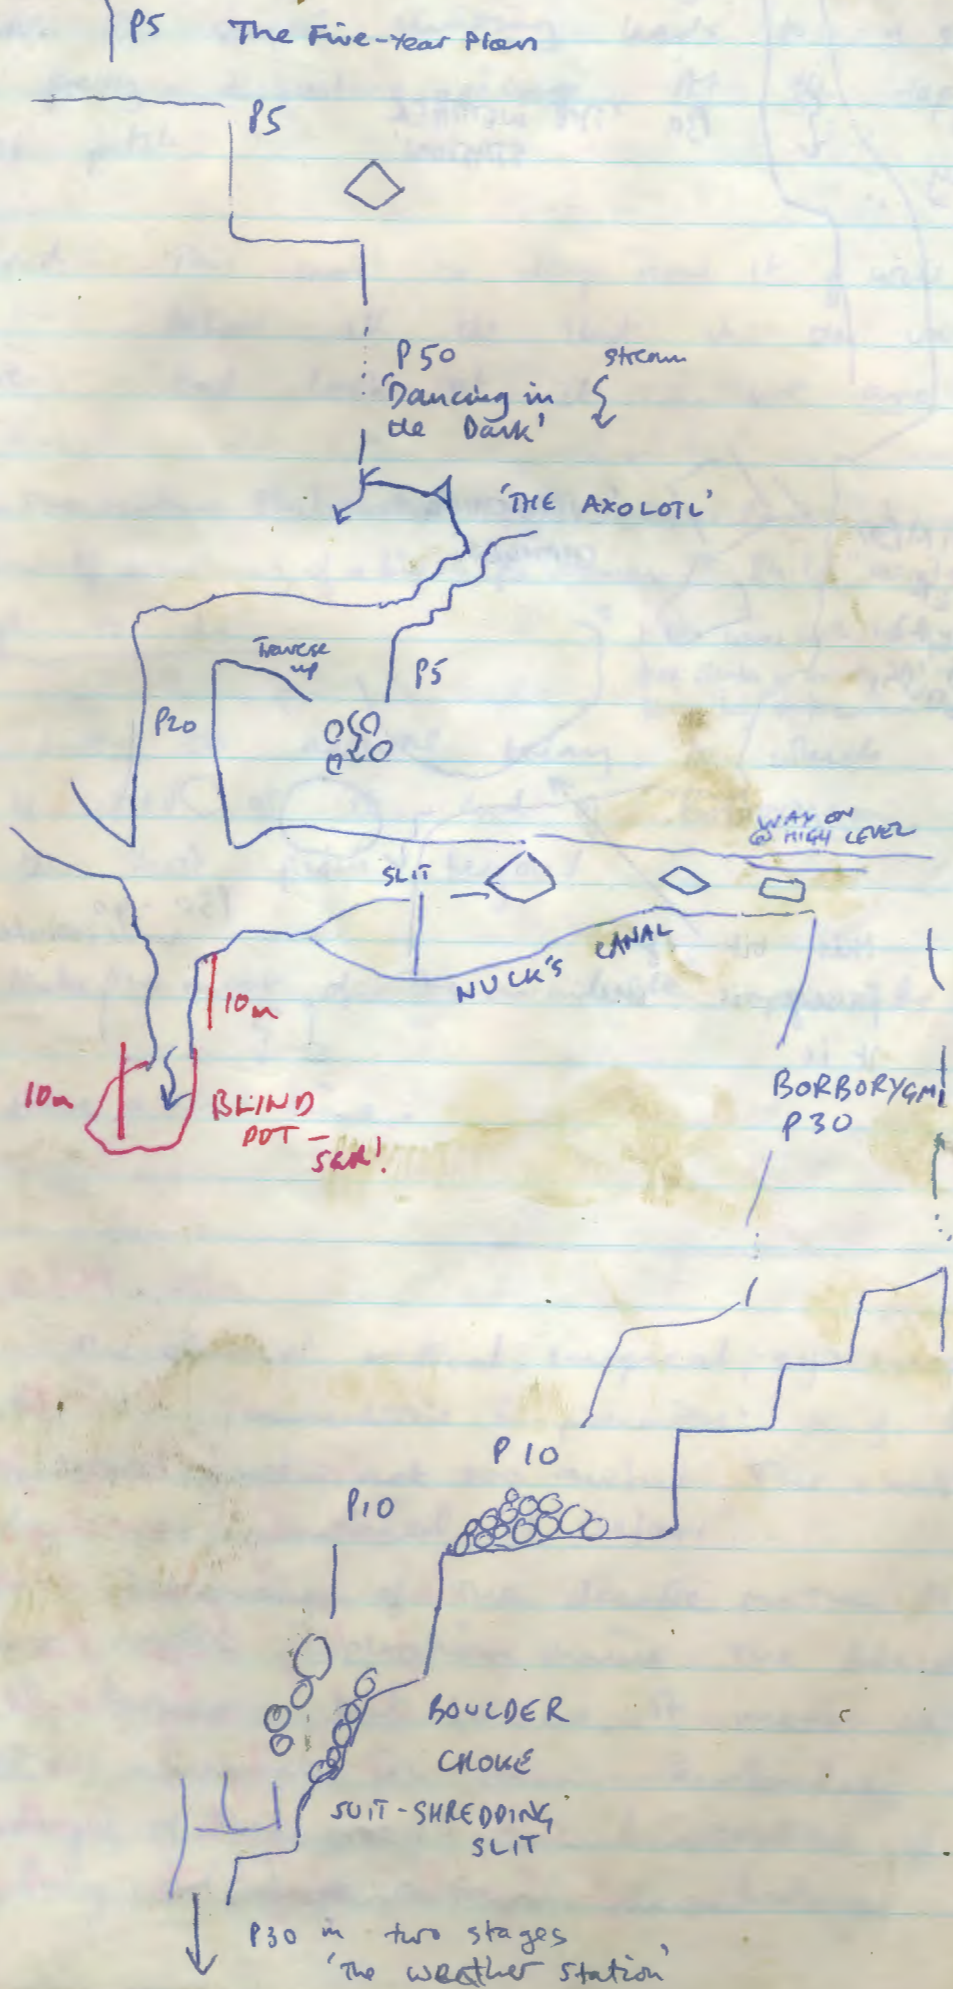 P5 The Five-Year Plan
P5
P50
'Dancing in
the Dark'
stream
'THE AXOLOTL'
Traverse
up
P5
P20
WAY ON
@ HIGH LEVEL
SLIT
NUCK'S CANAL
10m
10m
BLIND
POT -
BORBORYGMI
P30
P10
P10
BOULDER
CHOKE
SUIT-SHREDDING
SLIT
P30 in two stages
'The Weather Station'